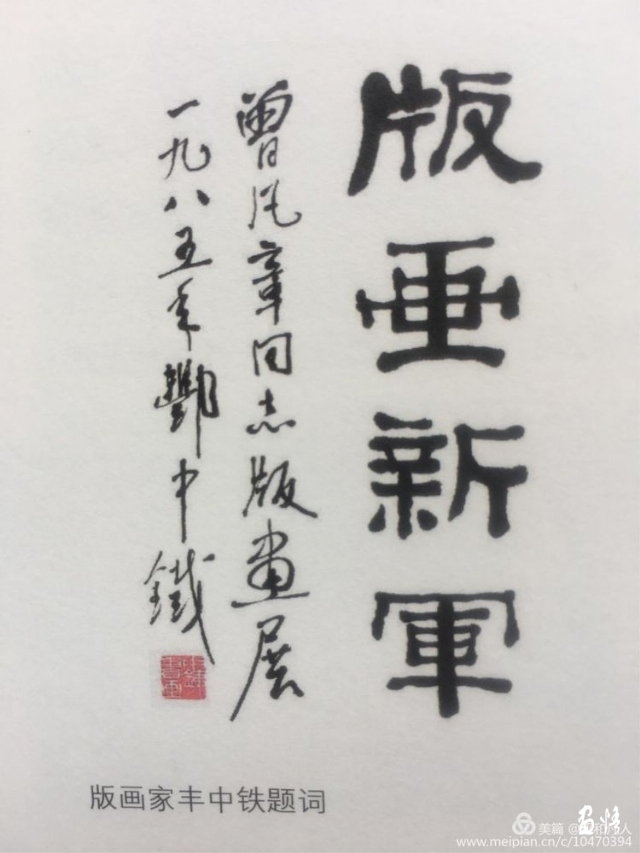 版画新軍
曾凡章同志版畫展
一九八五年酆中鐵
版画家丰中铁题词
美篇
www.meipian.cn/c/10470394